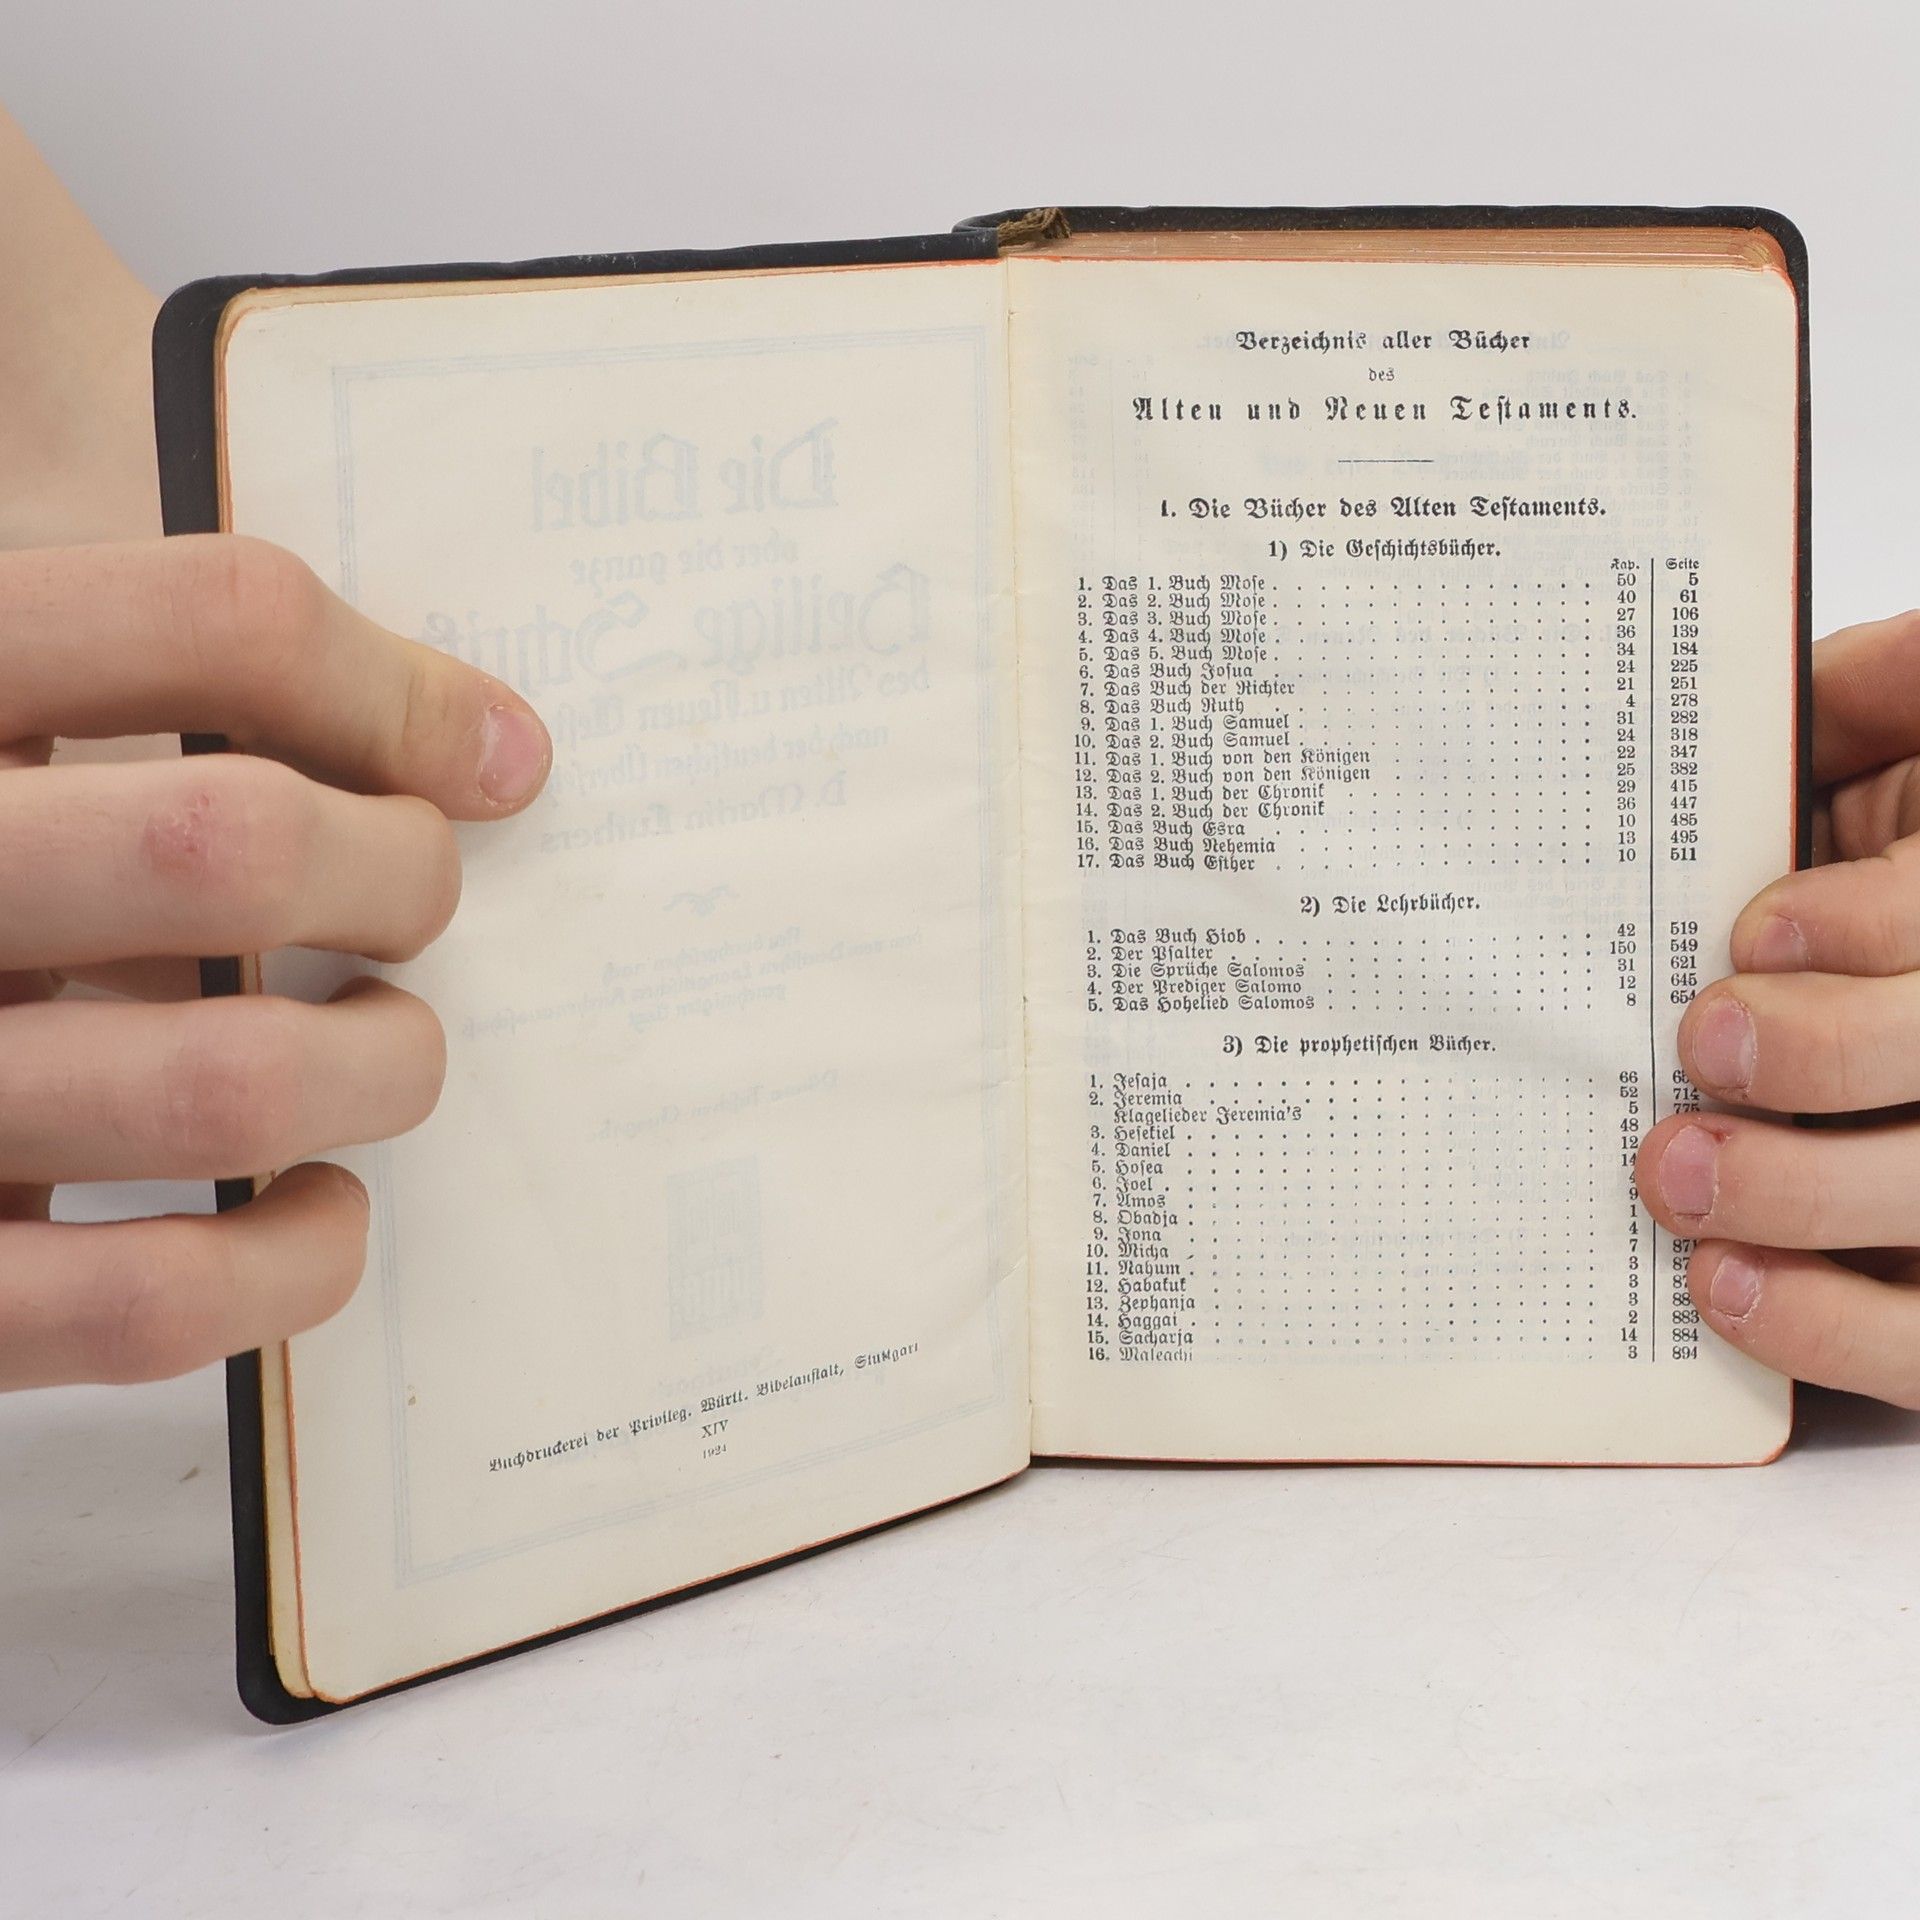 Buchdruckerei der Privileg. Württ. Bibelanstalt, Stuttgart
XIV
1924
Verzeichnis aller Bücher
des
Alten und Neuen Testaments.
1. Die Bücher des Alten Testaments.
1) Die Geschichtsbücher.
Kap. Seite
1. Das 1. Buch Mose 50 5
2. Das 2. Buch Mose 40 61
3. Das 3. Buch Mose 27 106
4. Das 4. Buch Mose 36 139
5. Das 5. Buch Mose 34 184
6. Das Buch Josua 24 225
7. Das Buch der Richter 21 251
8. Das Buch Ruth 4 278
9. Das 1. Buch Samuel 31 282
10. Das 2. Buch Samuel 24 318
11. Das 1. Buch von den Königen 22 347
12. Das 2. Buch von den Königen 25 382
13. Das 1. Buch der Chronik 29 415
14. Das 2. Buch der Chronik 36 447
15. Das Buch Esra 10 485
16. Das Buch Nehemia 13 495
17. Das Buch Esther 10 511
2) Die Lehrbücher.
1. Das Buch Hiob 42 519
2. Der Psalter 150 549
3. Die Sprüche Salomos 31 621
4. Der Prediger Salomo 12 645
5. Das Hohelied Salomos 8 654
3) Die prophetischen Bücher.
1. Jesaja 66
2. Jeremia 52 714
Klagelieder Jeremia's 5 775
3. Hesekiel 48
4. Daniel 12
5. Hosea 14
6. Joel
7. Amos 9
8. Obadja 1
9. Jona 4
10. Micha 7 871
11. Nahum 3
12. Habakuk 3
13. Zephanja 3
14. Haggai 2 883
15. Sacharja 14 884
16. Maleachi 3 894